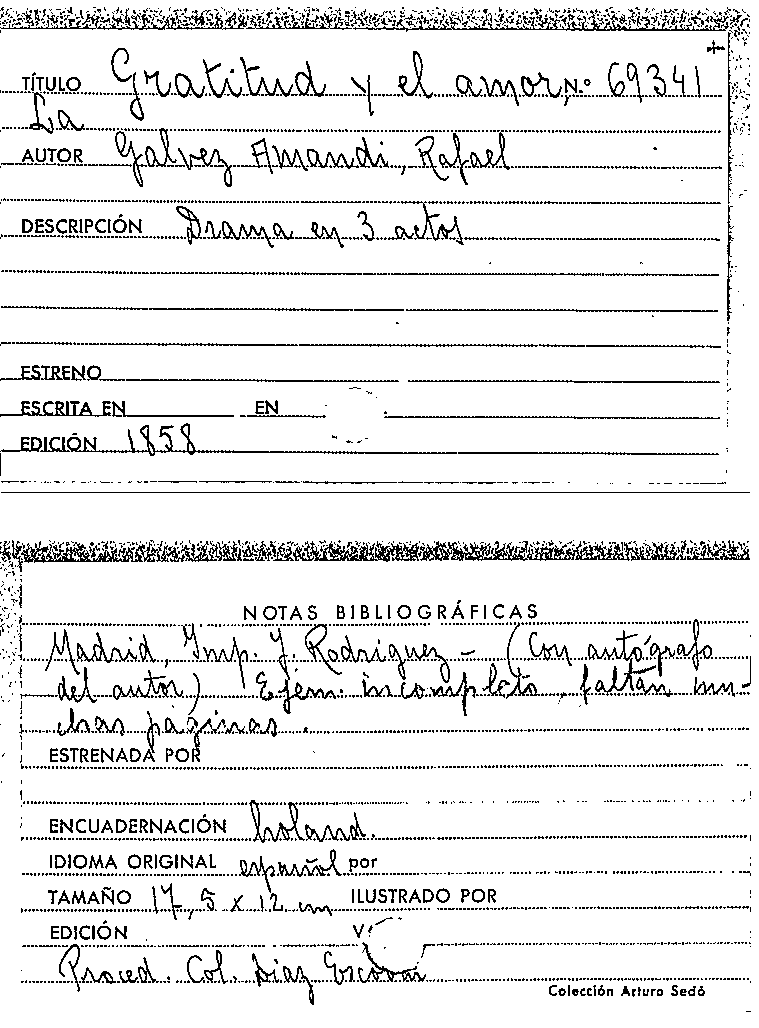 TÍTULO Gratitud y el amor, N.º 69341
La
AUTOR Galvez Amandi, Rafael
DESCRIPCIÓN Drama en 3 actos
ESTRENO
ESCRITA EN EN
EDICIÓN 1858
NOTAS BIBLIOGRÁFICAS
Madrid, Imp. J. Rodriguez - (Con autógrafo
del autor) Ejem. incompleto, faltan mu-
chas páginas.
ESTRENADA POR
ENCUADERNACIÓN holand.
IDIOMA ORIGINAL español por
TAMAÑO 17,5 x 12 cm ILUSTRADO POR
EDICIÓN
Proced. Col. Diaz Escovar
Colección Arturo Sedó